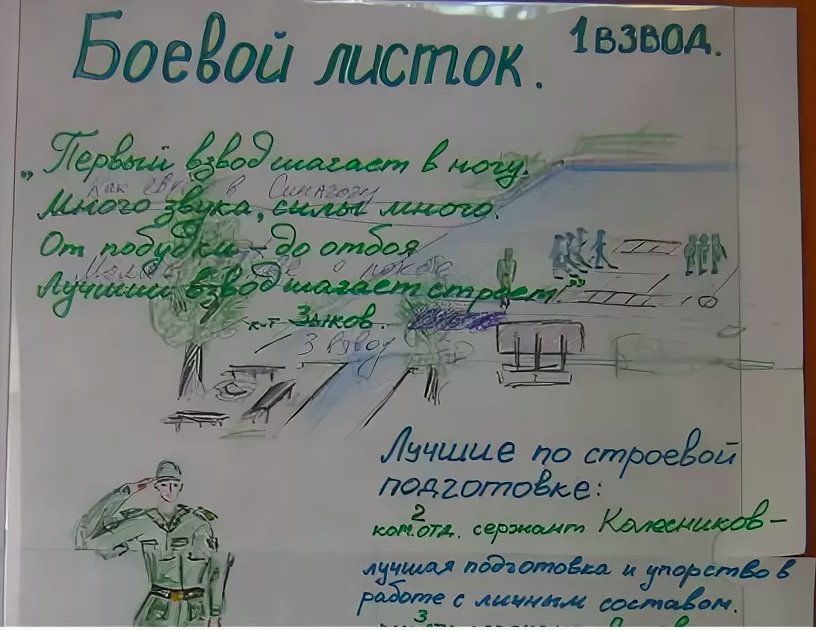 Боевой листок.
1 ВЗВОД.
„Первый взвод шагает в ногу.
Как в Синагогу
Много звука, силы много.
От побудки – до отбоя
Лучший взвод шагает строем"
к-т Зыков.
3 взвод
Лучшие по строевой
подготовке:
2
ком.отд. сержант Колесников–
лучшая подготовка и упорство в
работе с личным составом.
3